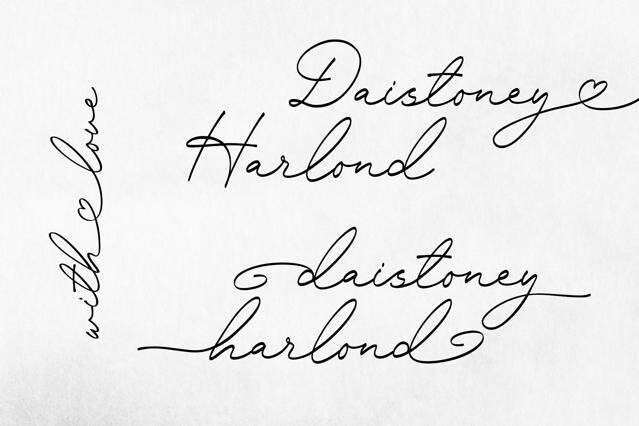 with love
Daistoney
Harlond
daistoney
harlond